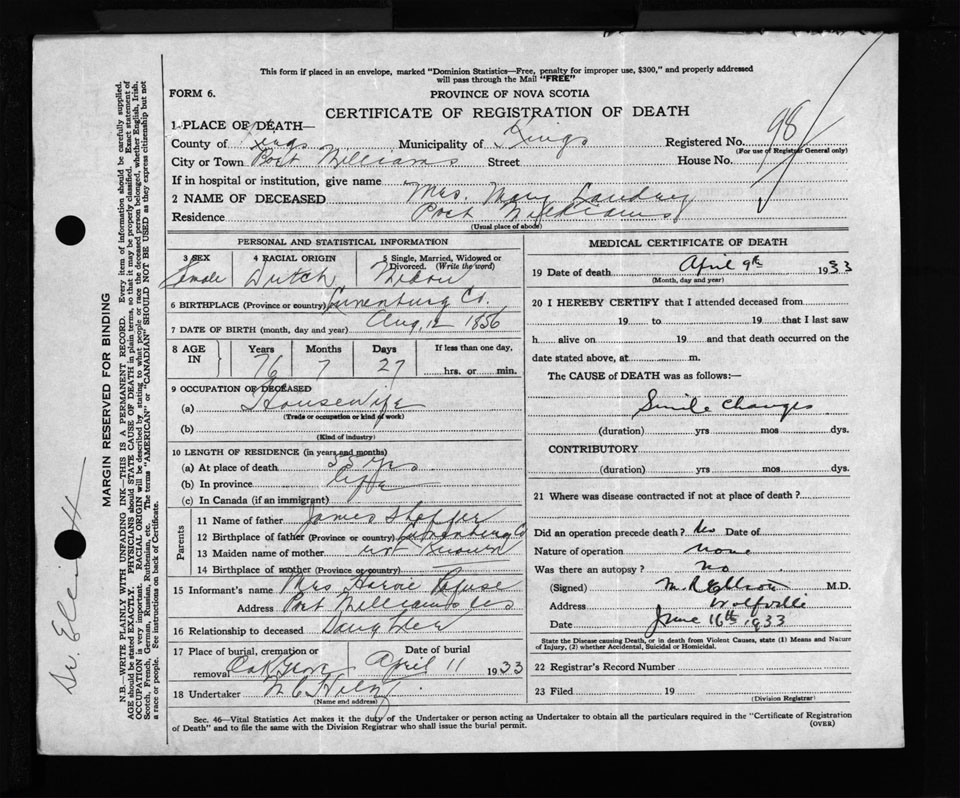 This form if placed in an envelope, marked "Dominion Statistics—Free, penalty for improper use, $300," and properly addressed
will pass through the Mail "FREE"
FORM 6.
PROVINCE OF NOVA SCOTIA
CERTIFICATE OF REGISTRATION OF DEATH
1 PLACE OF DEATH—
County of Kings Municipality of Kings Registered No. 98
(For use of Registrar General only)
City or Town Port Williams Street House No.
If in hospital or institution, give name
2 NAME OF DECEASED Mrs. Mary
Residence Port Williams
(Usual place of abode)
PERSONAL AND STATISTICAL INFORMATION
3 SEX 4 RACIAL ORIGIN 5 Single, Married, Widowed or
Divorced. (Write the word)
Female Dutch Widow
6 BIRTHPLACE (Province or country) Lunenburg Co.
7 DATE OF BIRTH (month, day and year) Aug, 12 1856
8 AGE IN Years Months Days If less than one day,
76 7 27 hrs. or min.
9 OCCUPATION OF DECEASED
(a) Housewife
(Trade or occupation or kind of work)
(b)
(Kind of industry)
10 LENGTH OF RESIDENCE (in years and months)
(a) At place of death yrs
(b) In province life
(c) In Canada (if an immigrant)
Parents
11 Name of father James
12 Birthplace of father (Province or country) Lunenburg Co
13 Maiden name of mother not known
14 Birthplace of mother (Province or country)
15 Informant's name Mrs Harvie
Address Port Williams NS
16 Relationship to deceased Daughter
17 Place of burial, cremation or Date of burial
removal April 11 1933
18 Undertaker
(Name and address)
MEDICAL CERTIFICATE OF DEATH
19 Date of death April 9th 1933
(Month, day and year)
20 I HEREBY CERTIFY that I attended deceased from
19 to 19 that I last saw
h alive on 19 and that death occurred on the
date stated above, at m.
The CAUSE of DEATH was as follows:—
Senile Changes
(duration) yrs mos dys.
CONTRIBUTORY
(duration) yrs mos dys.
21 Where was disease contracted if not at place of death?
Did an operation precede death? No Date of
Nature of operation none
Was there an autopsy? No
(Signed) M. R. Elliott M.D.
Address Wolfville
Date June 16th 1933
State the Disease causing Death, or in death from Violent Causes, state (1) Means and Nature
of Injury, (2) whether Accidental, Suicidal or Homicidal.
22 Registrar's Record Number
23 Filed 19
(Division Registrar)
Sec. 46—Vital Statistics Act makes it the duty of the Undertaker or person acting as Undertaker to obtain all the particulars required in the "Certificate of Registration
of Death" and to file the same with the Division Registrar who shall issue the burial permit.
(OVER)
MARGIN RESERVED FOR BINDING
N.B.—WRITE PLAINLY WITH UNFADING INK—THIS IS A PERMANENT RECORD. Every item of information should be carefully supplied.
AGE should be stated EXACTLY. PHYSICIANS should STATE CAUSE OF DEATH in plain terms, so that it may be properly classified. Exact statement of
OCCUPATION is very important. RACIAL ORIGIN will be described by stating to what people or race the deceased person belonged, whether English, Irish,
Scotch, French, German, Russian, Ruthenian, etc. The terms "AMERICAN" or "CANADIAN" SHOULD NOT BE USED as they express citizenship but not
a race or people. See instructions on back of Certificate.
Dr. Elliott